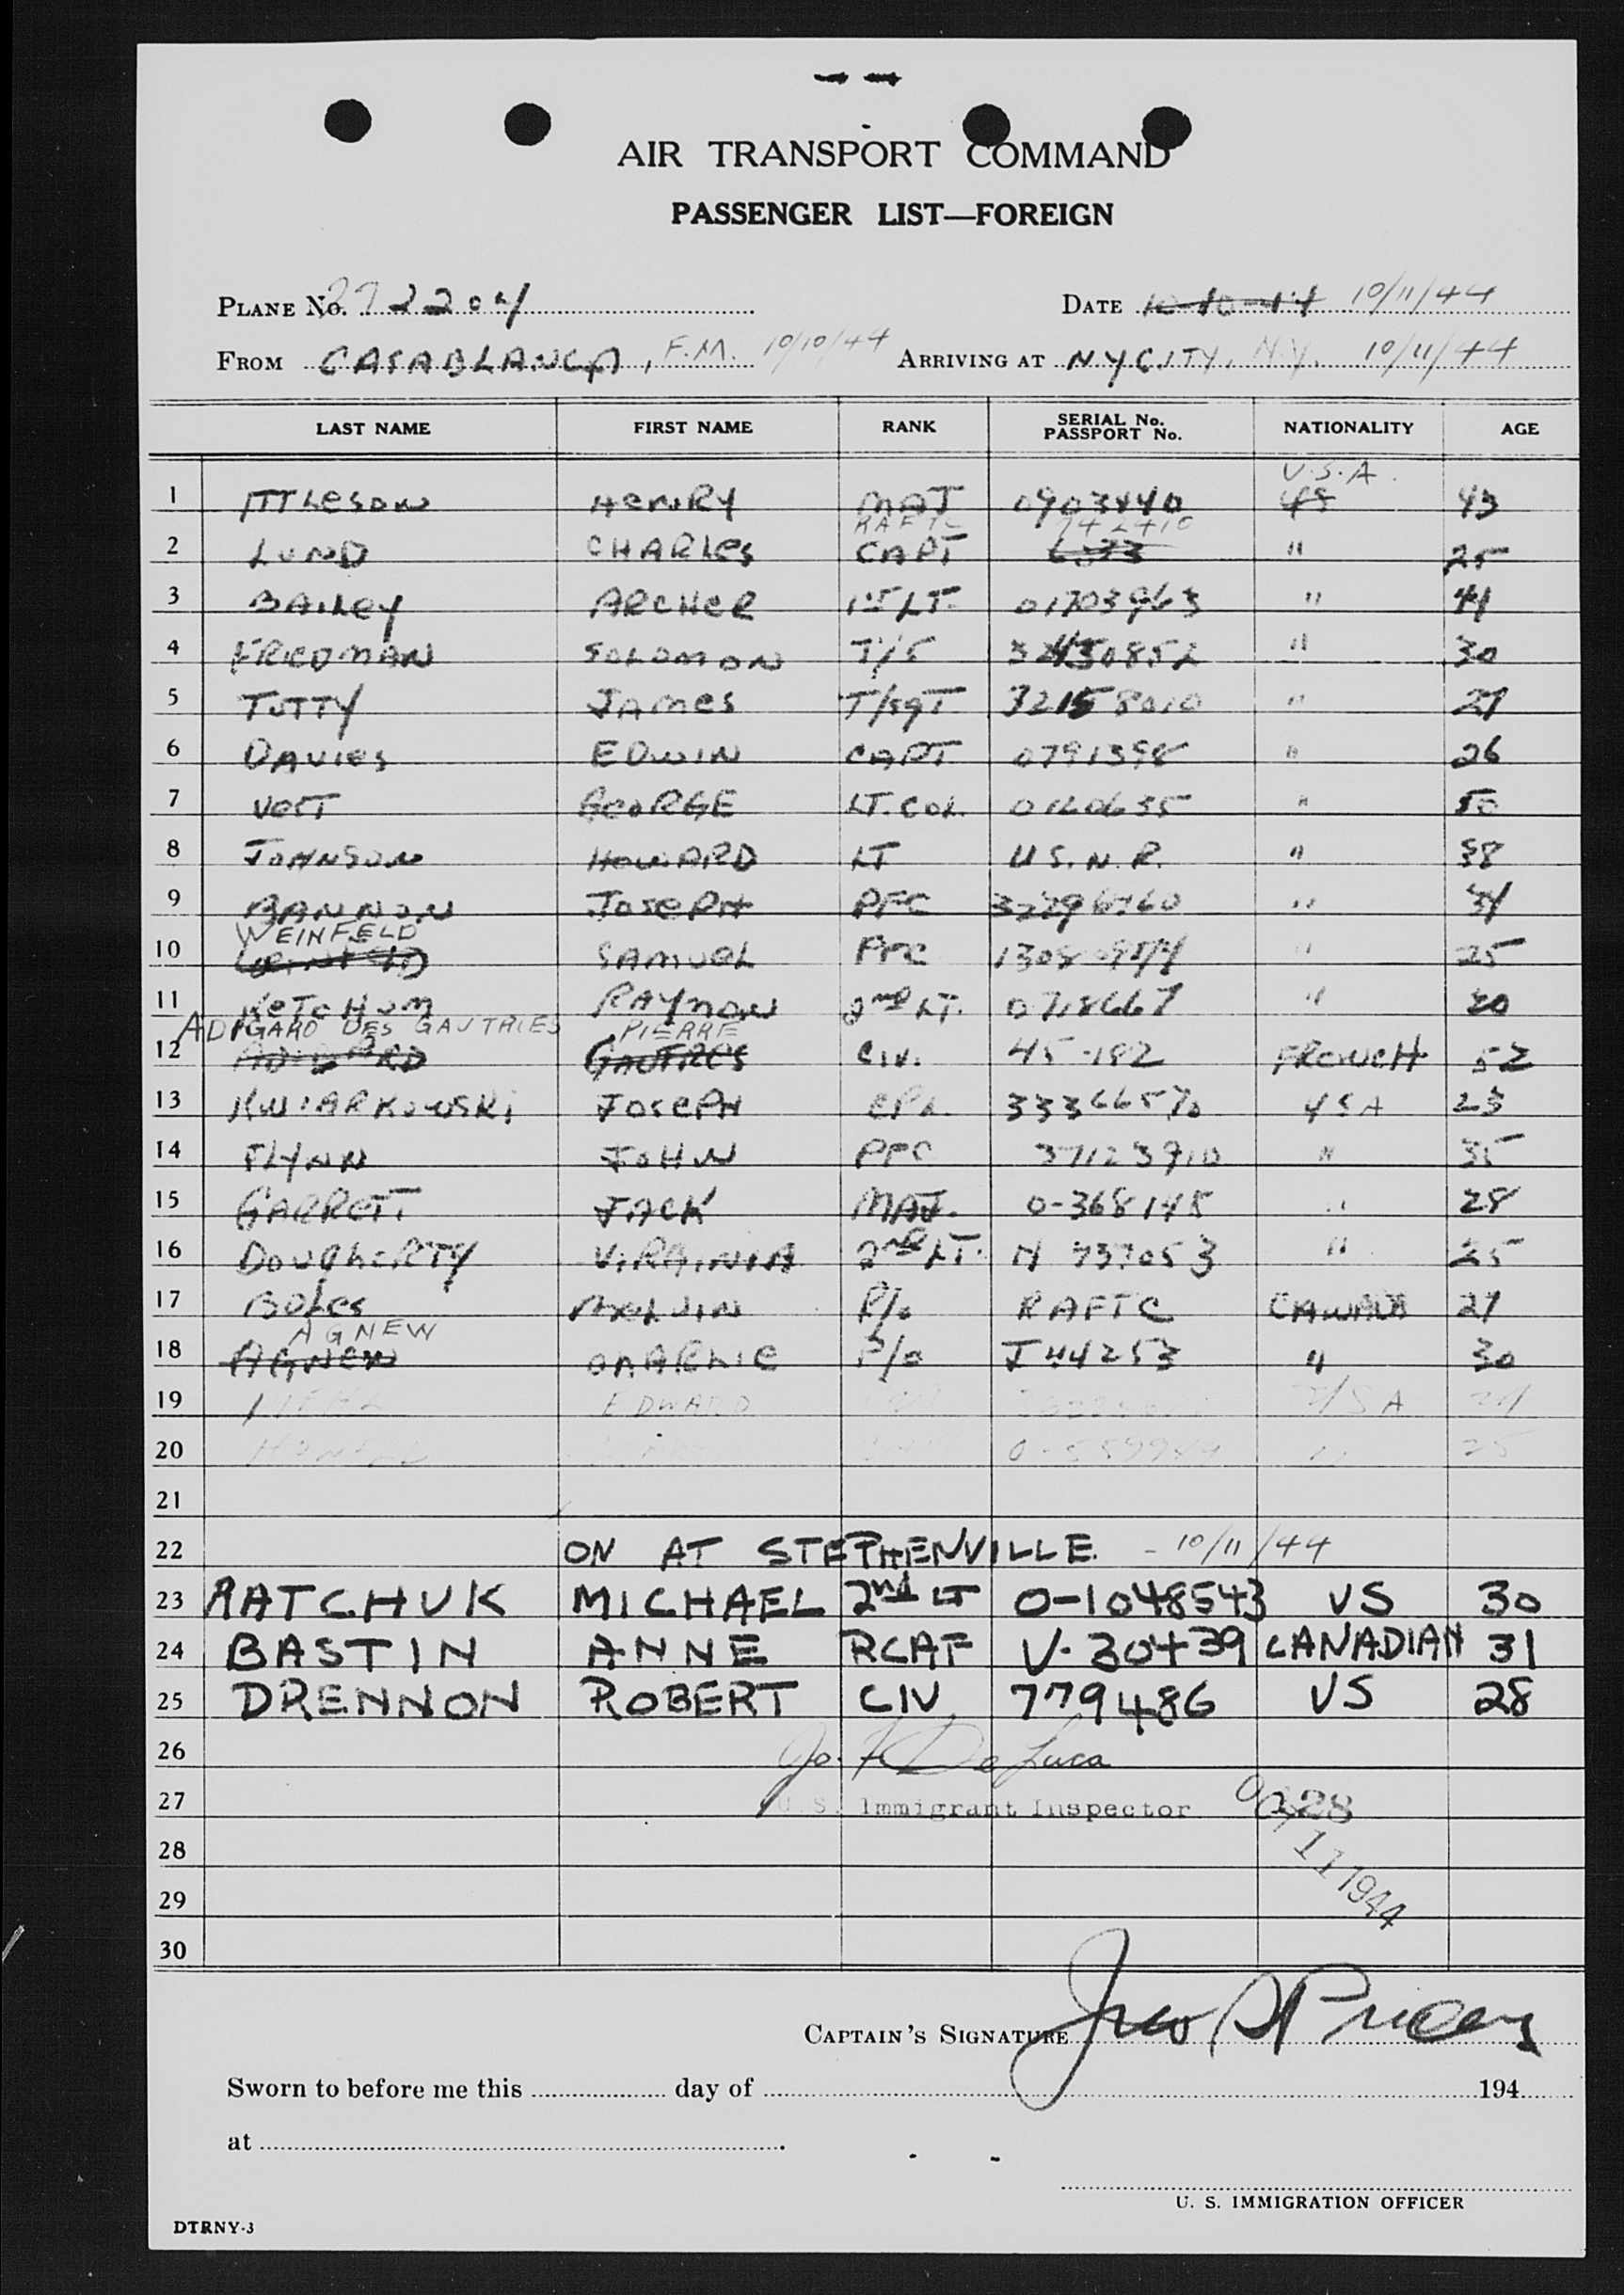 AIR TRANSPORT COMMAND
PASSENGER LIST—FOREIGN
PLANE No. 272204 DATE 10-10-44 10/11/44
FROM CASABLANCA, F.M. 10/10/44 ARRIVING AT N.Y CITY, N.Y. 10/11/44
LAST NAME FIRST NAME RANK SERIAL No. PASSPORT No. NATIONALITY AGE
U.S.A.
1 ITTLESON HENRY MAJ 0903440 US 43
RAFTC
2 LUND CHARLES CAPT " 25
3 BAILEY ARCHER 1ST LT. 01703963 " 41
4 FRIEDMAN SOLOMON T/5 32450852 " 30
5 TUTTY JAMES T/SGT 32158010 " 27
6 DAVIES EDWIN CAPT. 0791398 " 26
7 VOST GEORGE LT. COL. 0160635 " 50
8 JOHNSON HOWARD LT U.S.N.R. " 38
9 BANNON JOSEPH PFC "
WEINFELD
10 SAMUEL PFC " 25
11 KETCHUM RAYMON 2nd LT. 0718667 "
ADIGARD DES GAUTRIES PIERRE
12 GAUTRES CIV. 45-182 FRENCH 52
13 KWIARKOWSKI JOSEPH CPL. 33366570 USA 23
14 FLYNN JOHN PFC 37123910 " 35
15 GARRETT JACK MAJ. 0-368145 " 28
16 DOUGHERTY VIRGINIA 2ND LT. N 737053 " 25
17 BOLES MELVIN P/O RAFTC CANADA 27
AGNEW
18 AGNEW CHARLIE P/O J44253 " 30
19 EDWARD USA
20 25
21
22 ON AT STEPHENVILLE. - 10/11/44
23 RATCHUK MICHAEL 2nd LT 0-1048543 US 30
24 BASTIN ANNE RCAF V-30439 CANADIAN 31
25 DRENNON ROBERT CIV 779486 US 28
26 Jo. F. De Luca
27 U.S. Immigrant Inspector 28
OCT 11 1944
28
29
30
CAPTAIN'S SIGNATURE
Sworn to before me this day of 194
at
U. S. IMMIGRATION OFFICER
DTRNY-3